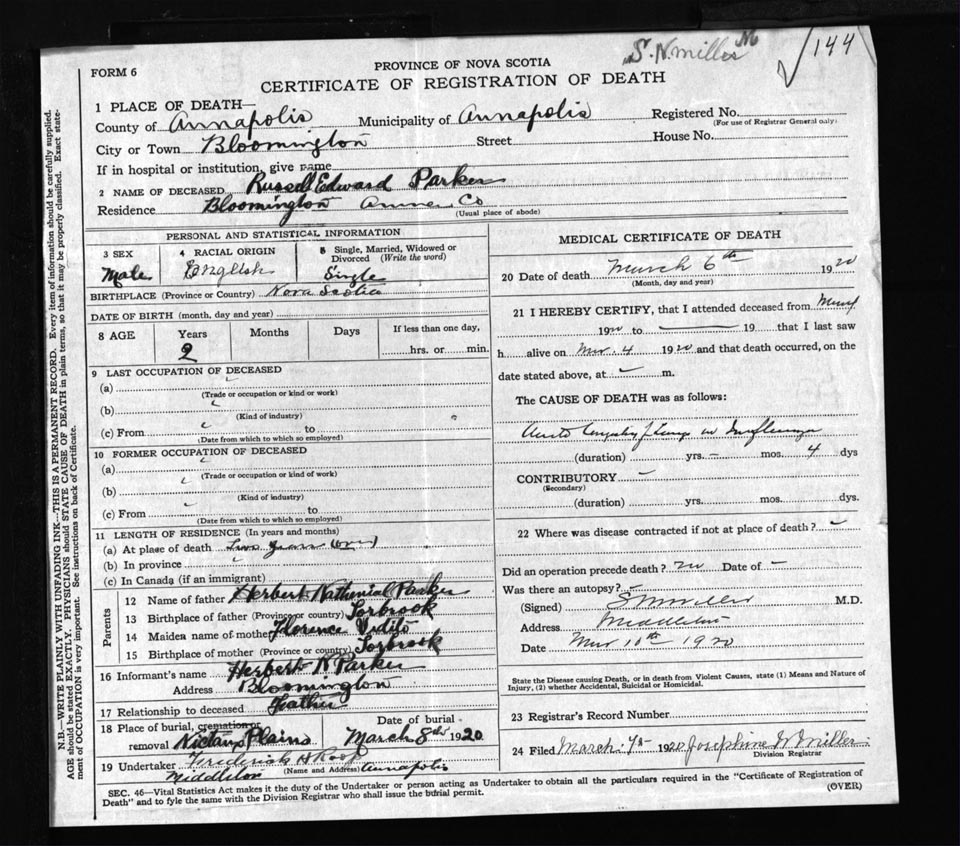 S. N. Miller
144
PROVINCE OF NOVA SCOTIA
FORM 6
CERTIFICATE OF REGISTRATION OF DEATH
1 PLACE OF DEATH—
County of Annapolis Municipality of Annapolis Registered No.
(For use of Registrar General only)
City or Town Bloomington Street House No.
If in hospital or institution, give name
2 NAME OF DECEASED Russell Edward Parker
Residence Bloomington Co
(Usual place of abode)
PERSONAL AND STATISTICAL INFORMATION
3 SEX 4 RACIAL ORIGIN 5 Single, Married, Widowed or Divorced (Write the word)
Male English Single
BIRTHPLACE (Province or Country) Nova Scotia
DATE OF BIRTH (month, day and year)
8 AGE Years Months Days If less than one day,
2 hrs. or min.
9 LAST OCCUPATION OF DECEASED
(a)
(Trade or occupation or kind or work)
(b)
(Kind of industry)
(c) From to
(Date from which to which so employed)
10 FORMER OCCUPATION OF DECEASED
(a)
(Trade or occupation or kind or work)
(b)
(Kind of industry)
(c) From to
(Date from which to which so employed)
11 LENGTH OF RESIDENCE (In years and months)
(a) At place of death two years
(b) In province
(c) In Canada (if an immigrant)
Parents
12 Name of father Herbert Nathenial Parker
13 Birthplace of father (Province or country) Torbrook
14 Maiden name of mother Florence
15 Birthplace of mother (Province or country) Torbrook
16 Informant's name Herbert N Parker
Address Bloomington
17 Relationship to deceased Father
18 Place of burial, cremation or removal Nictaux Plains Date of burial March 8th 1920
19 Undertaker Frederick
(Name and Address)
Middleton Annapolis
MEDICAL CERTIFICATE OF DEATH
20 Date of death March 6th 1920
(Month, day and year)
21 I HEREBY CERTIFY, that I attended deceased from
1920 to 19 that I last saw
h alive on Mar. 4 1920 and that death occurred, on the
date stated above, at m.
The CAUSE OF DEATH was as follows:
Lungs Influenza
(duration) yrs. — mos. 4 dys
CONTRIBUTORY
(Secondary)
(duration) yrs. mos. dys.
22 Where was disease contracted if not at place of death?
Did an operation precede death? no Date of —
Was there an autopsy?
(Signed) S N Miller M.D.
Address Middleton
Date Mar 11th 1920
State the Disease causing Death, or in death from Violent Causes, state (1) Means and Nature of
Injury, (2) whether Accidental, Suicidal or Homicidal.
23 Registrar's Record Number
24 Filed March 1920 Josephine Miller
Division Registrar
SEC. 46—Vital Statistics Act makes it the duty of the Undertaker or person acting as Undertaker to obtain all the particulars required in the "Certificate of Registration of
Death" and to fyle the same with the Division Registrar who shall issue the burial permit.
(OVER)
N.B.—WRITE PLAINLY WITH UNFADING INK—THIS IS A PERMANENT RECORD. Every item of information should be carefully supplied.
AGE should be stated EXACTLY. PHYSICIANS should STATE CAUSE OF DEATH in plain terms, so that it may be properly classified. Exact statement
of OCCUPATION is very important. See instructions on back of Certificate.